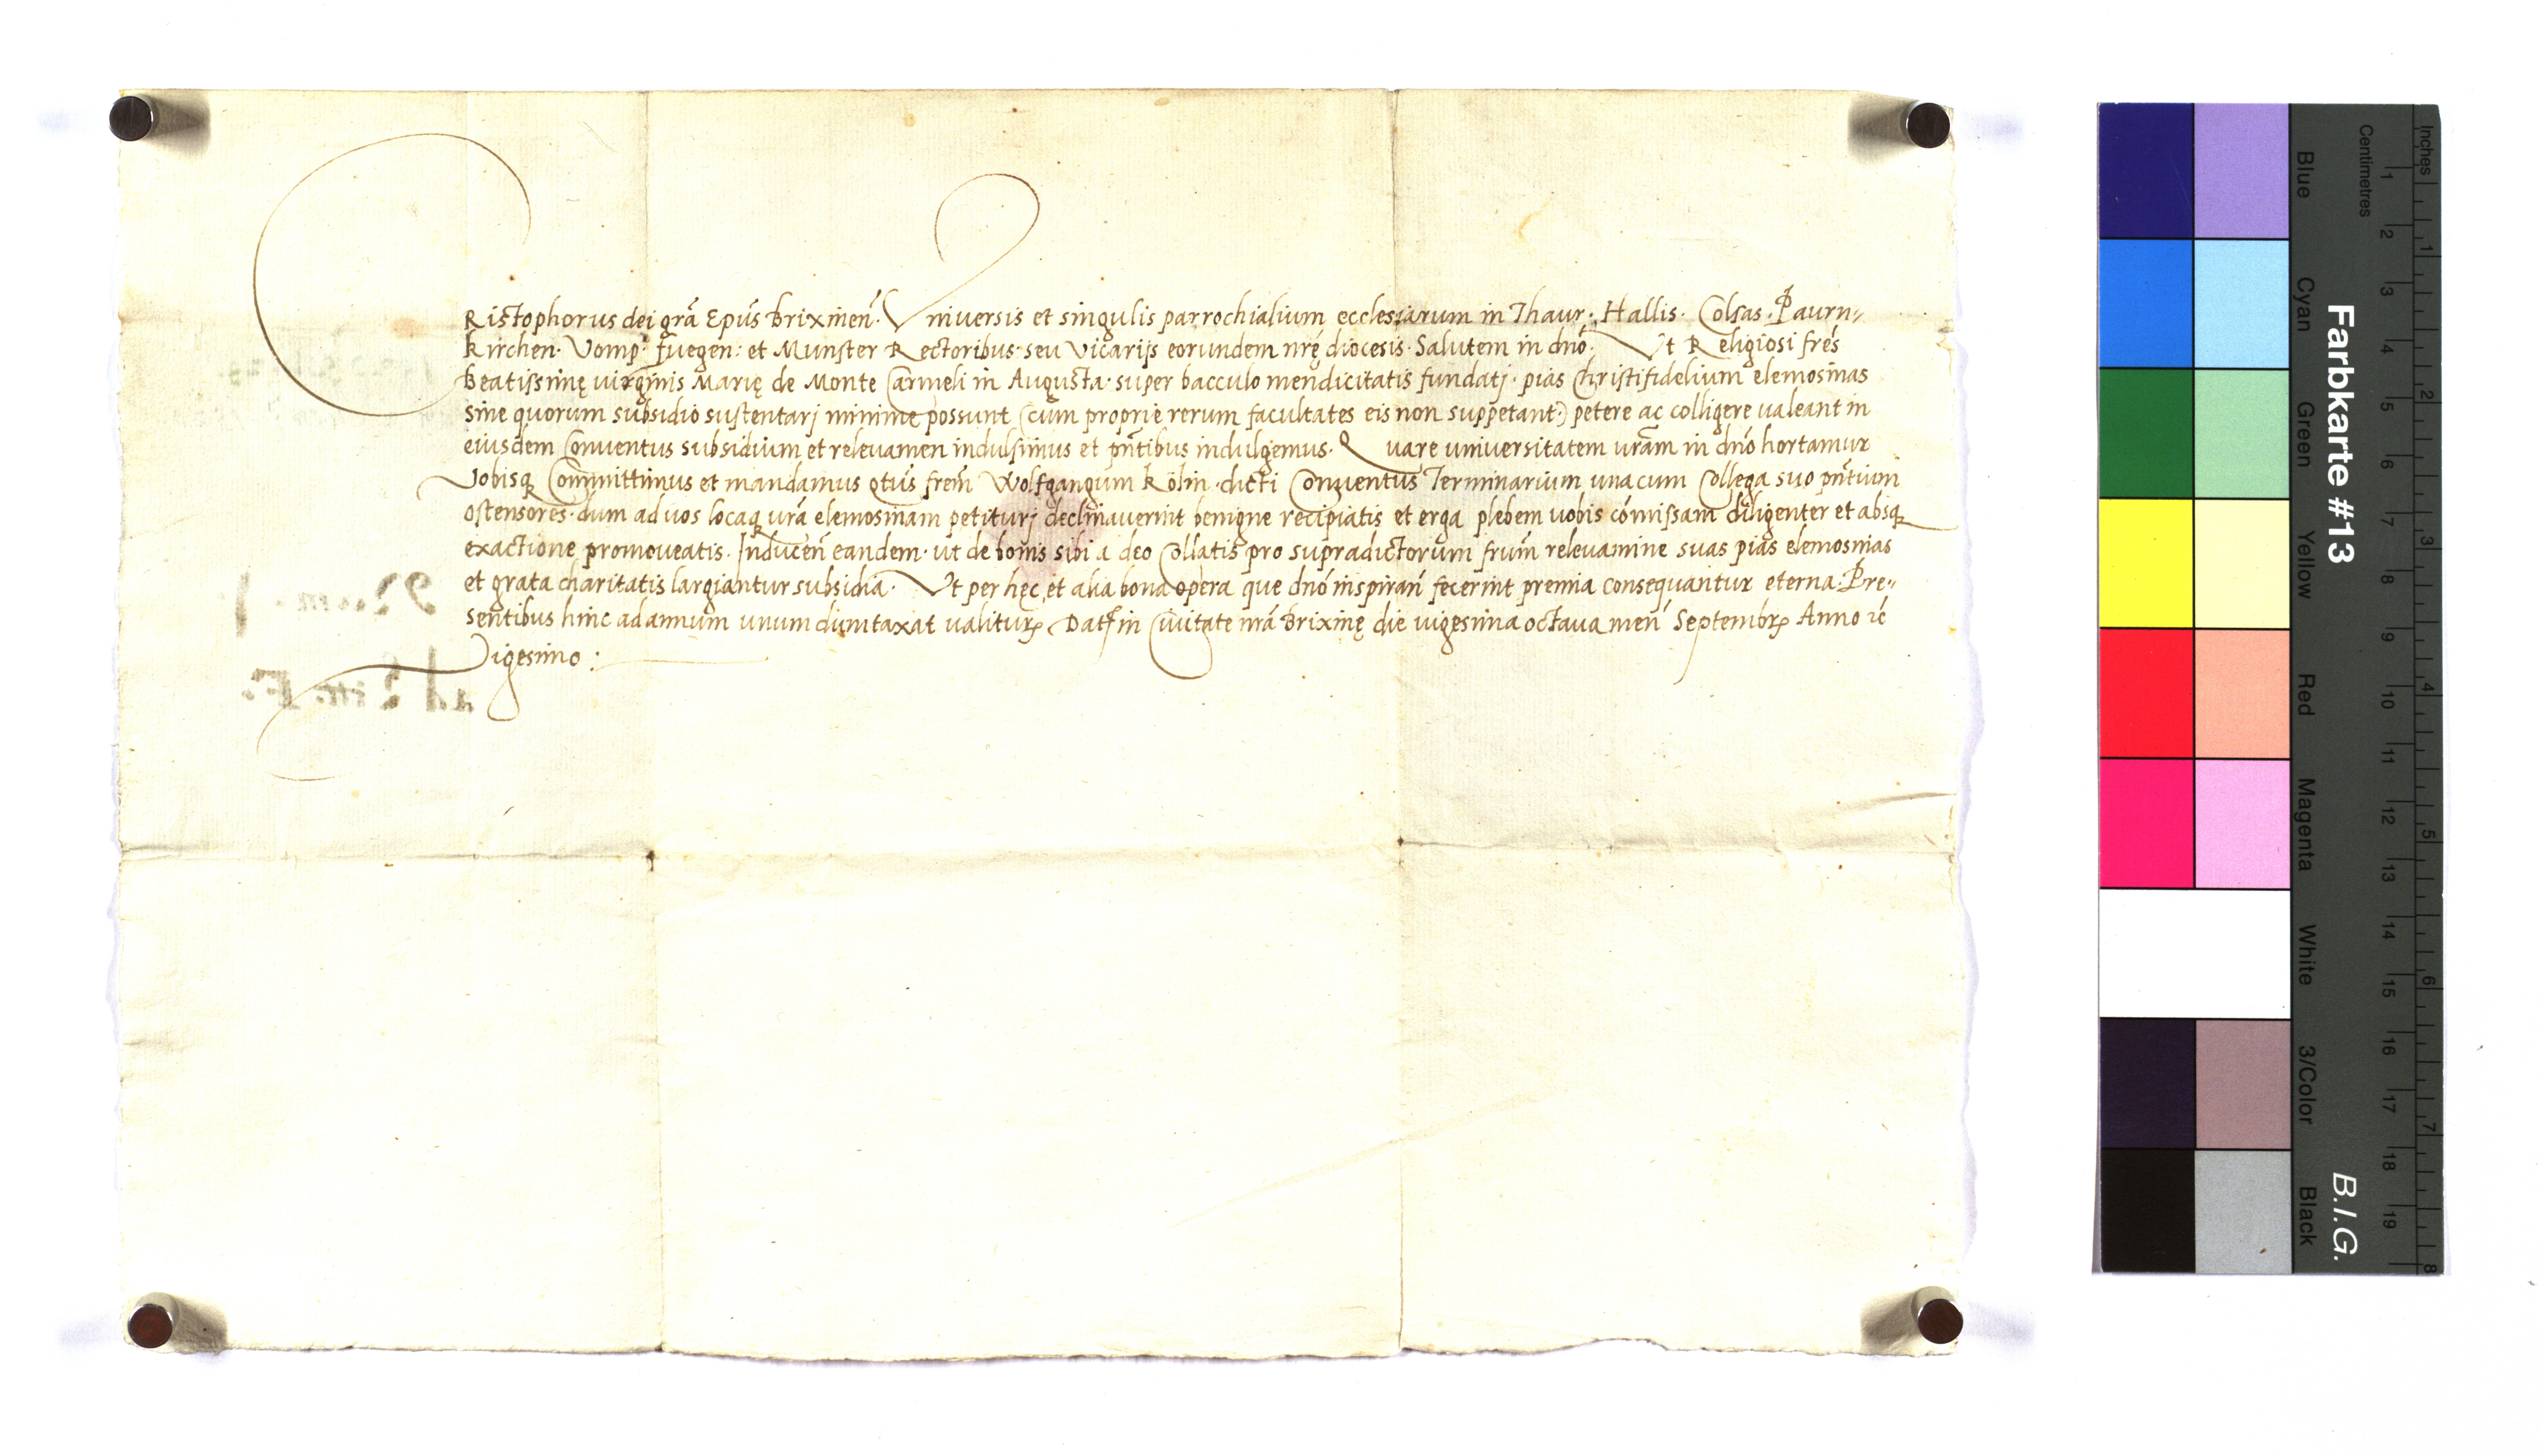 CRistophorus dei grã Epũs Brixineñ. Universis et singulis parrochialium ecclesiarum in Thaur. Hallis. Colsas. Paurn-
kirchen. Vomp. Fuegen: et Munster Rectoribus seu vicarijs eorundem nrę diocesis. Salutem in dnõ. Ut Religiosi frẽs
Beatissimę virginis Marię de Monte Carmeli in Augusta. super bacculo mendicitatis fundatj. pias Christifidelium elemosinas
sine quorum subsidio sustentarj minime possunt (cum proprie rerum facultates eis non suppetant.) petere ac colligere valeant in
eiusdem Conventus subsidium et relevamen indulsimus et pñtibus indulgemus. Quare universitatem vrãm in dnõ hortamur
Vobisq Committimus et mandamus qtũs frẽm Wolfgangum Kölin. dicti Conventus Terminarium unacum Collega suo pñtium
ostensores. dum ad vos locaq vrã elemosinam petiturj declinaverint benigne recipiatis et erga plebem vobis cõmissam diligenter et absq
exactione promoveatis. Induceñ eandem. ut de bonis sibi a deo Collatis pro supradictorum frũm relevamine suas pias elemosinas
et grata charitatis largiantur subsidia. Ut per hęc et alia bona opera que dnõ inspirañ fecerint premia consequantur eterna. Pre-
sentibus hinc ad annum unum dumtaxat valiturꝭ Datꝭ in Civitate nrã Brixinę die vigesima octava meñ Septembrꝭ Anno ꝛc̃
Vigesimo:
Num. 9
ad Litt. F.
Farbkarte #13
B.I.G.
Inches
Centimetres
Blue
Cyan
Green
Yellow
Red
Magenta
White
3/Color
Black
1 2 3 4 5 6 7 8 9 10 11 12 13 14 15 16 17 18 19
1 2 3 4 5 6 7 8